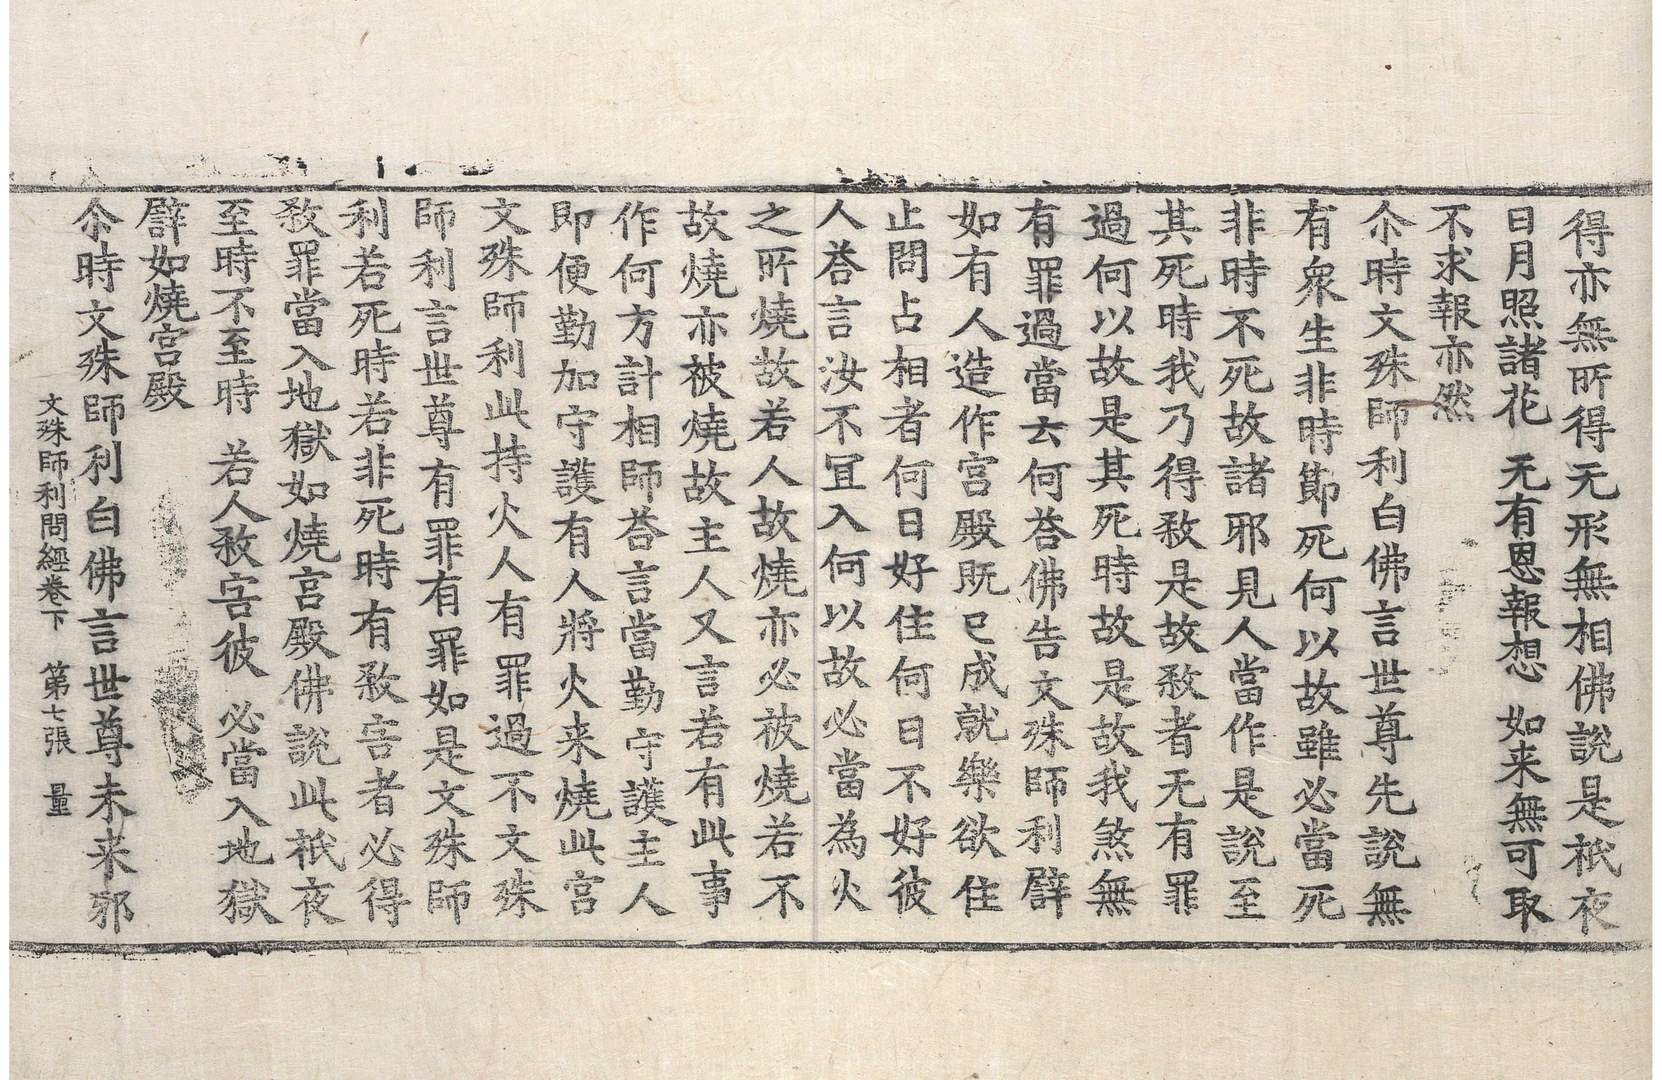 得亦無所得无形無相佛說是祇夜
日月照諸花 无有恩報想 如来無可取
不求報亦然
尒時文殊師利白佛言世尊先說無
有衆生非時節死何以故雖必當死
非時不死故諸邪見人當作是說至
其死時我乃得敎是故敎者无有罪
過何以故是其死時故是故我煞無
有罪過當云何荅佛告文殊師利譬
如有人造作宫殿既已成就樂欲住
止問占相者何日好住何日不好彼
人荅言汝不冝入何以故必當為火
之所燒故若人故燒亦必被燒若不
故燒亦被燒故主人又言若有此事
作何方計相師荅言當勤守護主人
即便勤加守護有人將火来燒此宫
文殊師利此持火人有罪過不文殊
師利言世尊有罪有罪如是文殊師
利若死時若非死時有敎害者必得
敎罪當入地獄如燒宫殿佛說此祇夜
至時不至時 若人敎害彼 必當入地獄
譬如燒宫殿
尒時文殊師利白佛言世尊未来邪
文殊師利問經卷下 第七張 量